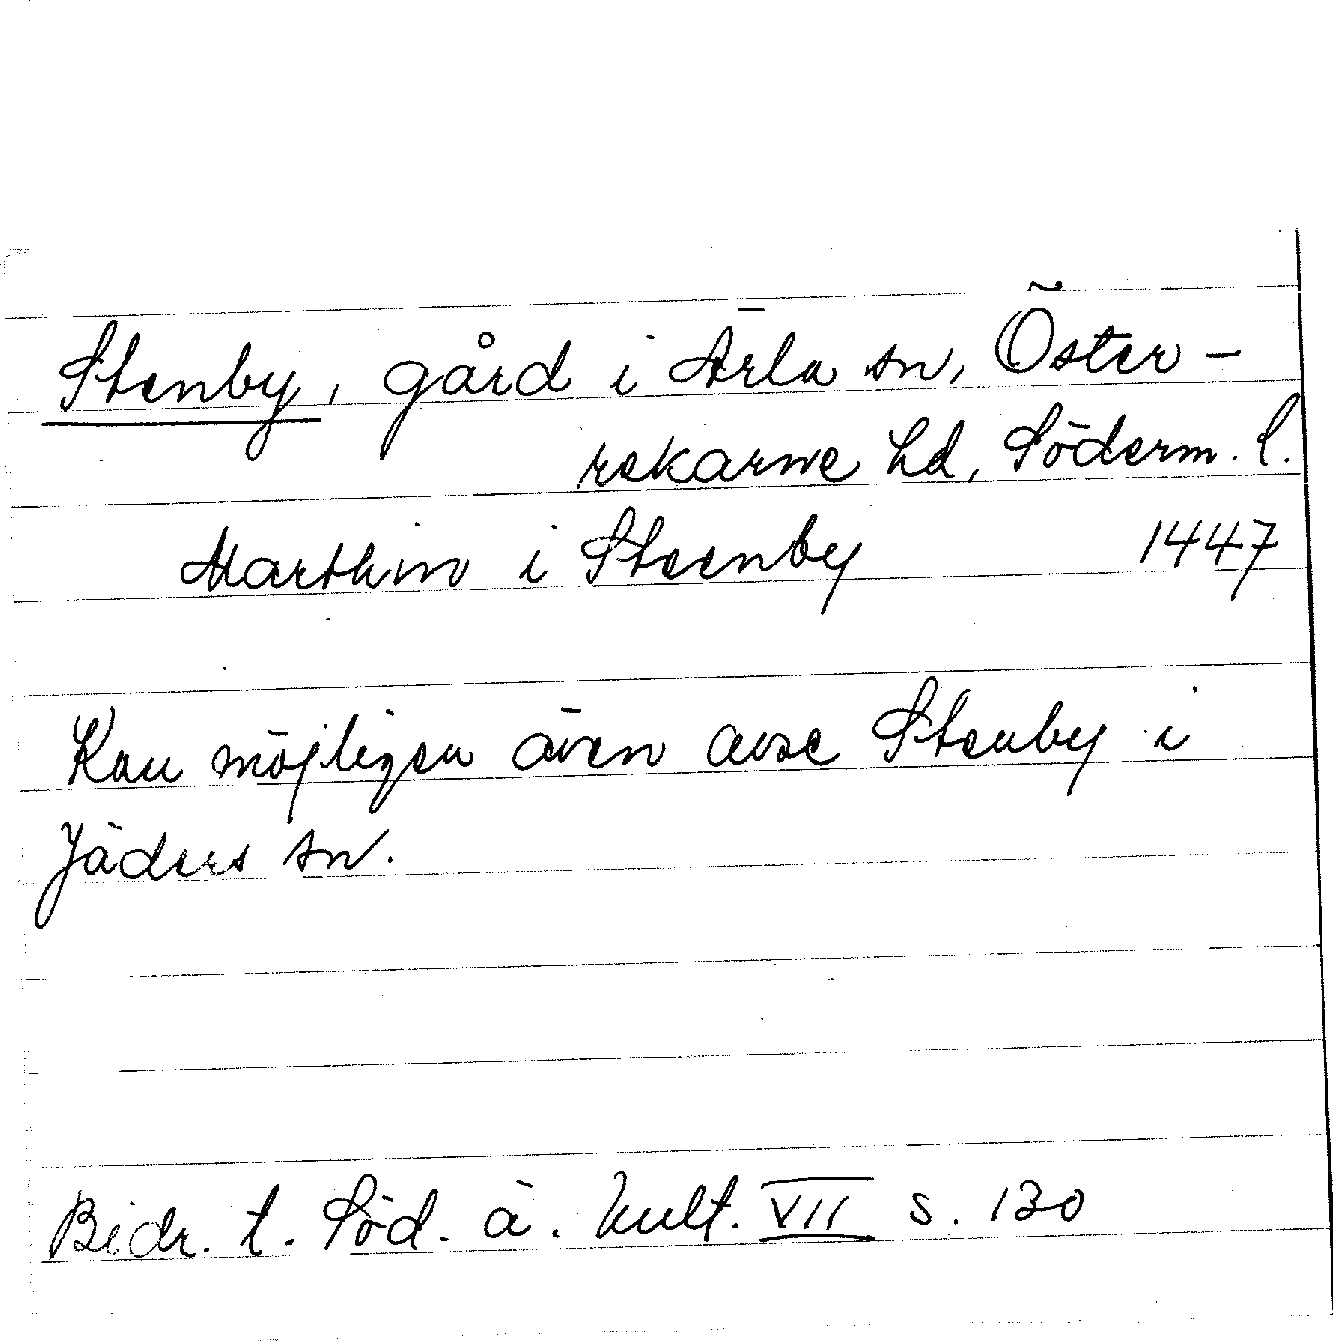 Stenby, gård i Ärla sn, Öster-
rekarne hd, Söderm. l.
Marthin i Steenby 1447
Kan möjligen även avse Stenby i
Jäders sn.
Bidr. t. Söd. ä. kult. VII s. 130